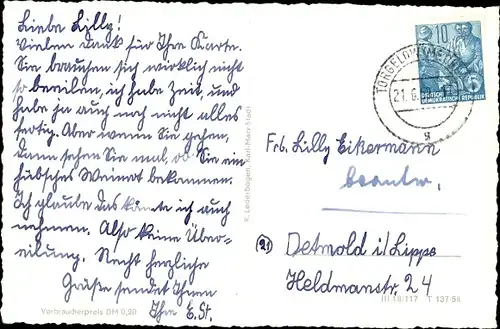 Liebe Lilly!
Vielen Dank für Ihre Karte.
Sie brauchen sich wirklich nicht
so beeilen, ich habe Zeit, und
habe ja auch noch nicht alles
fertig. Aber wenn Sie gehen,
dann sehen Sie mal, ob Sie ein
hübsches Weinrot bekommen.
Ich glaube das könnte ich auch
nehmen. Also keine Über-
eilung. Recht herzliche
Grüße sendet Ihnen
Ihre E. St.
Verbraucherpreis DM 0,20
K. Lederbogen, Karl-Marx-Stadt
10
DEUTSCHE
DEMOKRATISCHE REPUBLIK
TORGELOW
21.6.
g
Frl. Lilly Eikermann
beantw.
(21) Detmold i/Lippe
Heldmanstr. 24
III 18/117 T 137/58